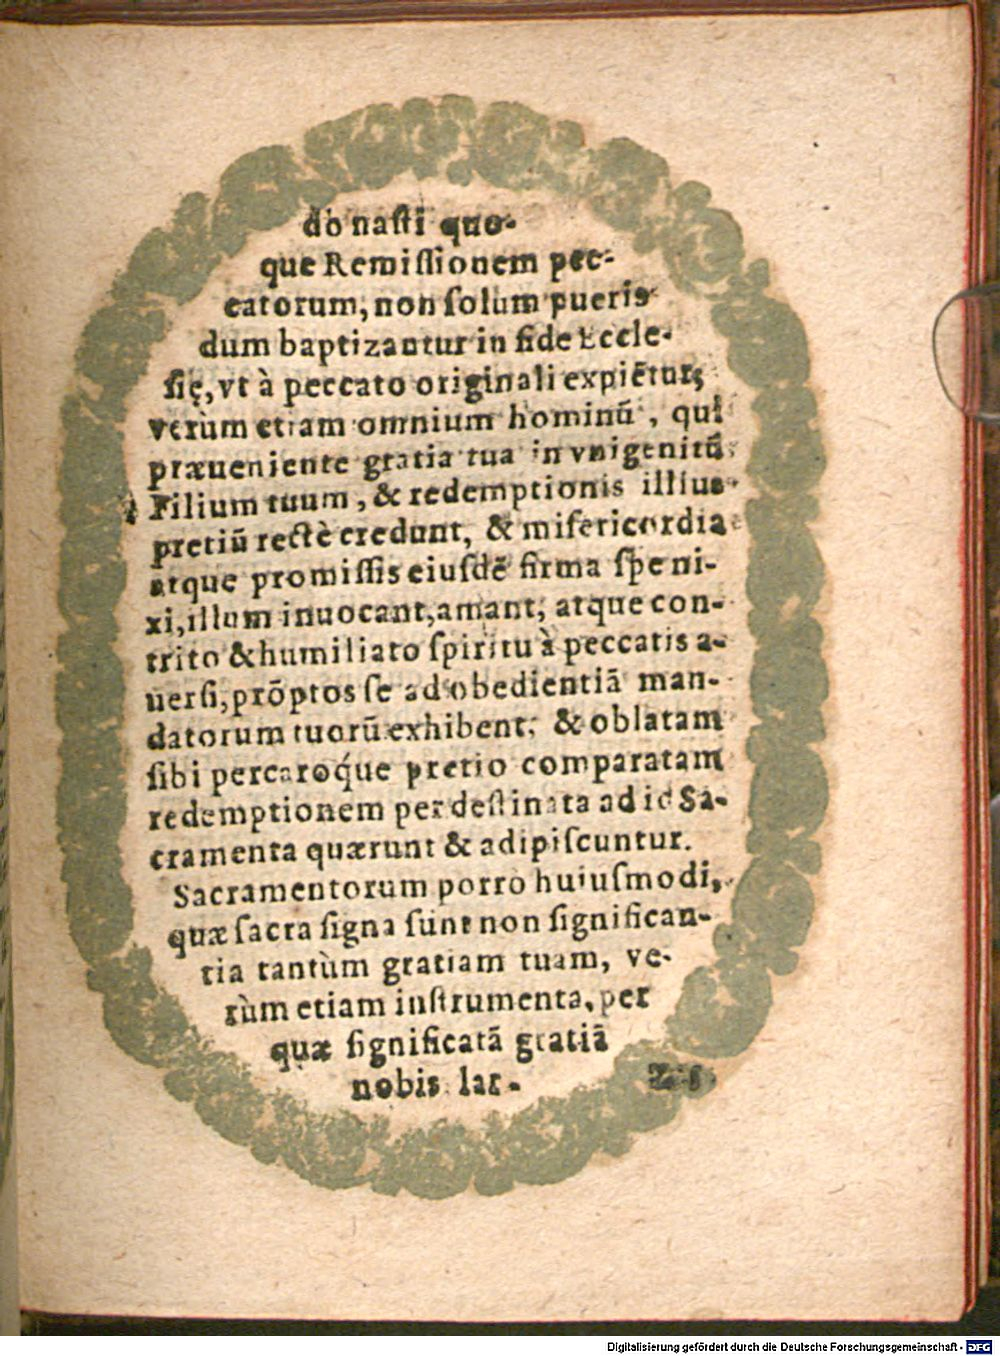 do nasti quo-
que Remissionem pec-
catorum, non solum pueris
dum baptizantur in fide Eccle-
się, vt à peccato originali expiẽtur,
verùm etiam omnium hominũ, qui
præueniente gratia tua in vnigenitũ
Filium tuum, & redemptionis illius
pretiũ rectè credunt, & misericordia
atque promissis eiusdẽ firma spe ni-
xi, illum inuocant, amant, atque con-
trito & humiliato spiritu à peccatis a-
uersi, prõptos se ad obedientiã man-
datorum tuorũ exhibent, & oblatam
sibi percaroq́ue pretio comparatam
redemptionem per destinata ad id Sa-
cramenta quærunt & adipiscuntur.
Sacramentorum porrò huiusmodi,
quæ sacra signa sunt non significan-
tia tantùm gratiam tuam, ve-
rùm etiam instrumenta, per
quæ significatã gratiã
nobis lar-
Digitalisierung gefördert durch die Deutsche Forschungsgemeinschaft - DFG